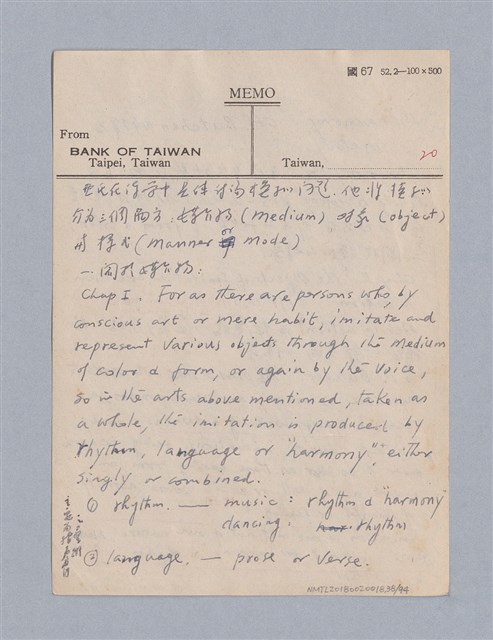 國 67 52.2—100×500
MEMO
From
BANK OF TAIWAN
Taipei, Taiwan
Taiwan,
20
亞氏在詩學中具體討論模仿問題. 他將模仿
分為三個側方: 媒介物 (medium) 對象 (object)
與樣式 (manner or mode)
一. 關於媒介物:
Chap I. For as there are persons who, by
conscious art or mere habit, imitate and
represent various objects through the medium
of color & form, or again by the voice,
so in the arts above mentioned, taken as
a whole, the imitation is produced by
rhythm, language or "harmony", either
singly or combined.
① rhythm. — music: rhythm & "harmony"
dancing: rhythm
② language. — prose or verse.
NMTL20180020018.38/44